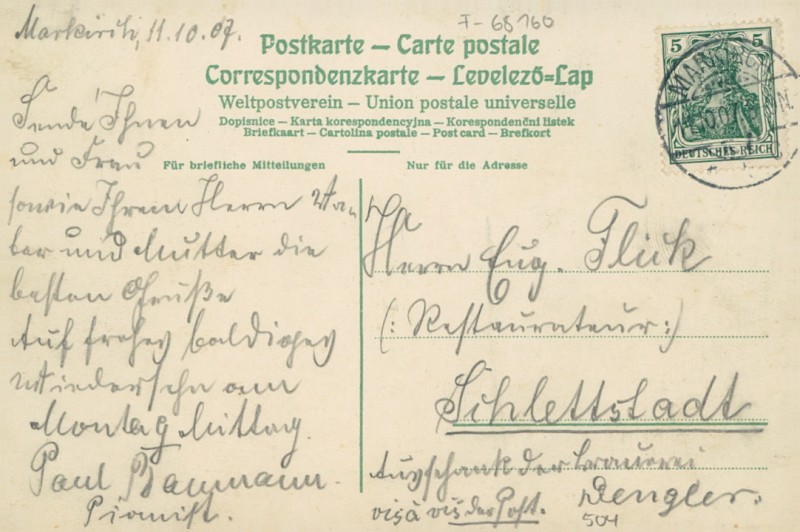 Markirch, 11.10.07.
F-68160
Postkarte – Carte postale
Correspondenzkarte – Levelező-Lap
Weltpostverein – Union postale universelle
Dopisnice – Karta korespondencyjna – Korespondenční lístek
Briefkaart – Cartolina postale – Post card – Brefkort
Für briefliche Mitteilungen
Nur für die Adresse
5 5
DEUTSCHES REICH
Sende Ihnen
und Frau
sowie Ihrem Herrn Va-
ter und Mutter die
besten Grüße
Auf frohes baldiges
Wiedersehn am
Montag Mittag.
Paul Baumann.
Pianist.
Herrn Eug. Flick
(: Restaurateur :)
Schlettstadt
Ausschank der Brauerei
Dengler.
vis à vis der Post.
504